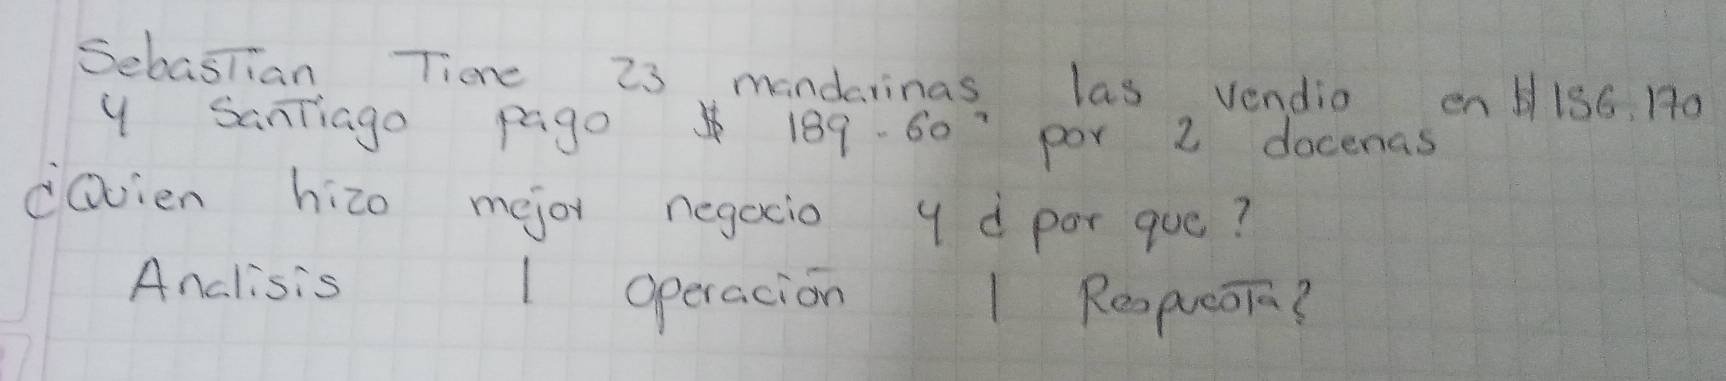 Sebastian Tiene 23 mandarinas las vendio en $ 156.170
y Santiago pago $ 189.60 por 2 docenas
¿Quien hizo mejor negocio y ¿ por que?
Analisis | operación | Respuesta?